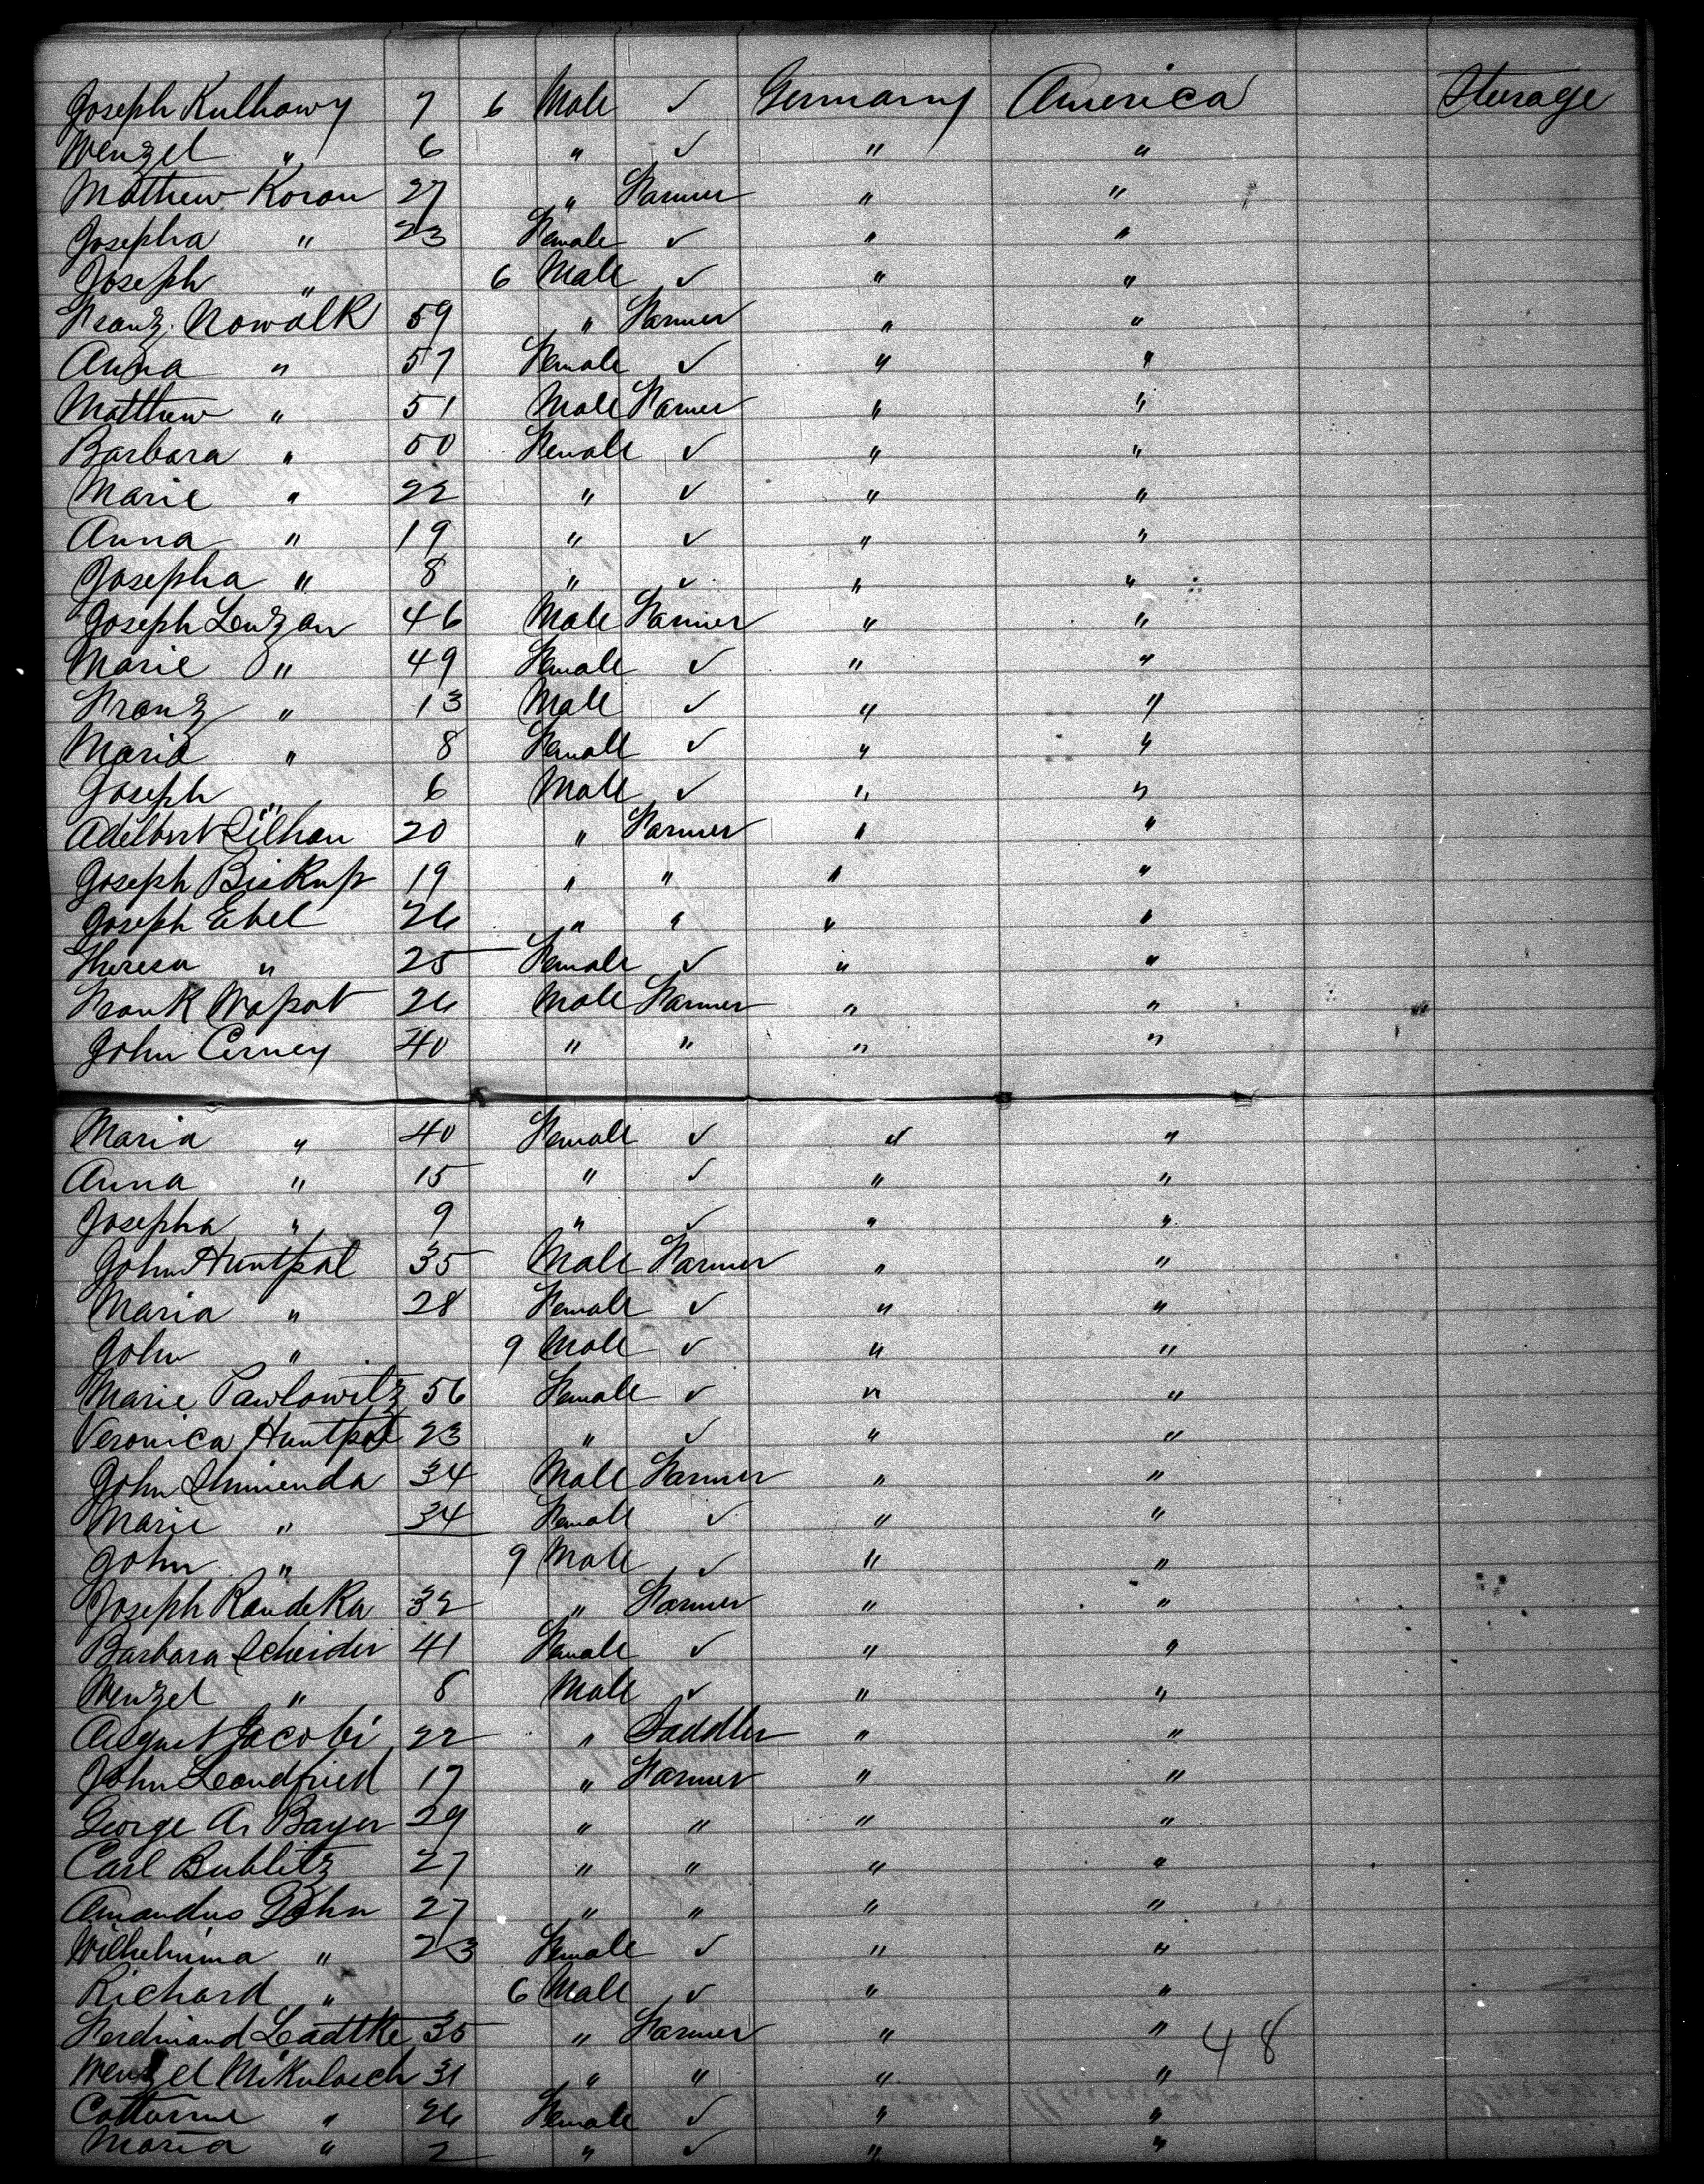 Joseph Kulhawy 7 6 Male ✓ Germany America Sterage
Wenzel " 6 " ✓ " "
Mathew Koran 27 " Farmer " "
Josepha " 23 Female ✓ " "
Joseph " 6 Male ✓ " "
Franz Nowalk 59 " Farmer " "
Anna " 57 Female ✓ " "
Matthew " 51 Male Farmer " "
Barbara " 50 Female ✓ " "
Marie " 22 " ✓ " "
Anna " 19 " ✓ " "
Josepha " 8 " ✓ " "
Joseph Lenzan 46 Male Farmer " "
Marie " 49 Female ✓ " "
Franz " 13 Male ✓ " "
Maria " 8 Female ✓ " "
Joseph " 6 Male ✓ " "
Adelbert 20 " Farmer " "
Joseph Biskup 19 " " " "
Joseph Ebel 26 " " " "
Theresa " 25 Female ✓ " "
Frank Wapat 26 Male Farmer " "
John Cerney 40 " " " "
Maria " 40 Female ✓ " "
Anna " 15 " ✓ " "
Josepha " 9 " ✓ " "
John Huntpal 35 Male Farmer " "
Maria " 28 Female ✓ " "
John " 9 Male ✓ " "
Marie Pawlowitz 56 Female ✓ " "
Veronica Huntpal 23 " ✓ " "
John 34 Male Farmer " "
Marie " 34 Female ✓ " "
John " 9 Male ✓ " "
Joseph Randeka 32 " Farmer " "
Barbara Scheider 41 Female ✓ " "
Wenzel " 8 Male ✓ " "
August Jacobi 22 " Saddler " "
John Leandfried 17 " Farmer " "
George A. Bayer 29 " " " "
Carl Bublitz 27 " " " "
Amandus 27 " " " "
Wilhelmina " 23 Female ✓ " "
Richard " 6 Male ✓ " "
Ferdinand Leadtke 35 " Farmer " " 48
Wenzel Mikulasch 31 " " " "
Catterine " 26 Female ✓ " "
Maria " 2 " ✓ " "